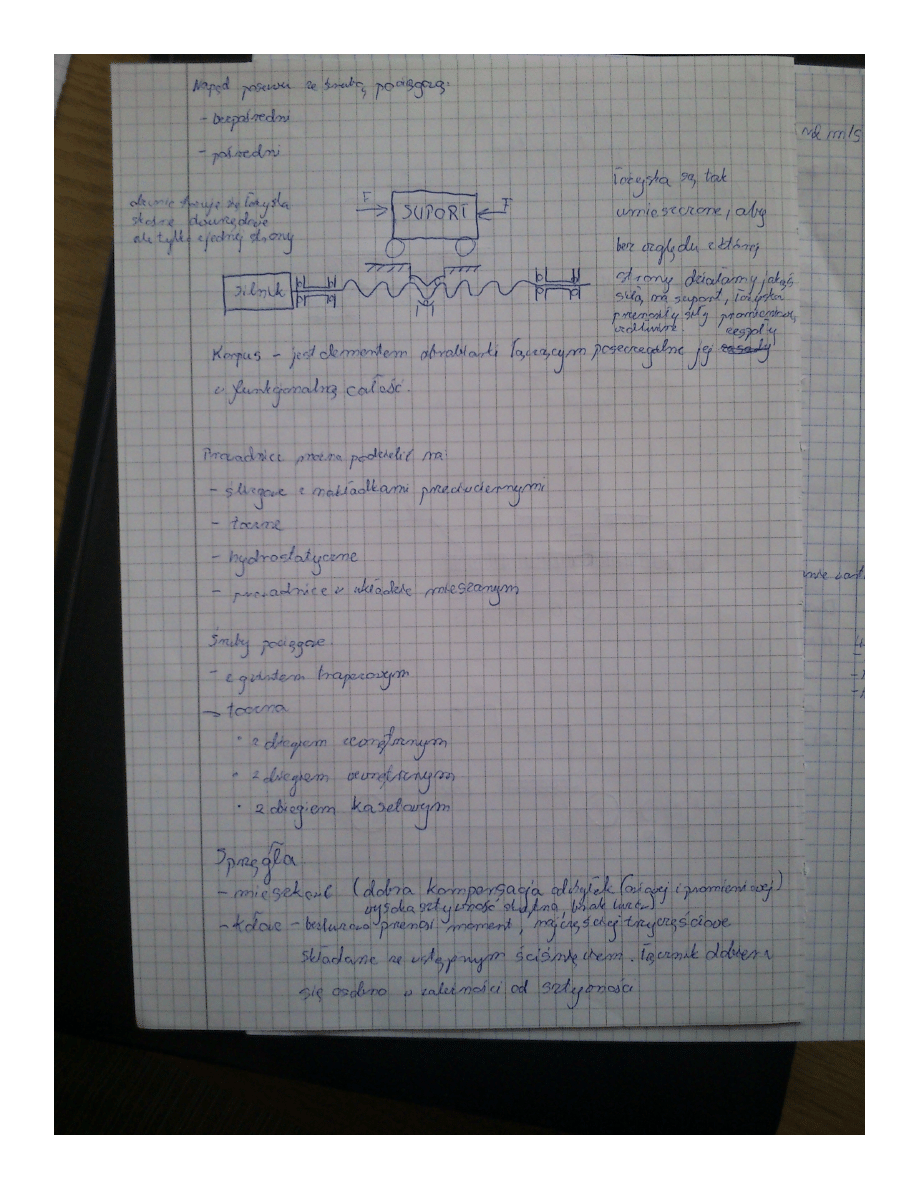 Napęd posuwu ze śrubą pociągową:
- bezpośredni
- pośredni
stosuje się łożyska
skośne dwurzędowe
ale tylko z jednej strony
F
SUPORT
F
silnik
M
Łożyska są tak
umieszczone, aby
bez względu z której
strony działamy jakąś
siłą na suport, łożyska
przenosiły siły promieniowe,
wzdłużne.
Korpus - jest elementem obrabiarki łączącym poszczególne jej zespoły
w funkcjonalną całość.
Prowadnice można podzielić na:
- ślizgowe z nakładkami przeciwciernymi
- toczne
- hydrostatyczne
- prowadnice w układzie mieszanym
Śruby pociągowe.
- z gwintem trapezowym
- toczna
• z biegiem zewnętrznym
• z biegiem wewnętrznym
• z biegiem kasetowym
Sprzęgła
- mieszkowe (dobra kompensacja odchyłek (osiowej i promieniowej)
wysoka sztywność skrętna, brak luzu)
- kłowe - bezluzowo przenosi moment, najczęściej trzyczęściowe
składane ze wstępnym ściśnięciem. Łącznik dobiera
się osobno w zależności od sztywności
nd m/s